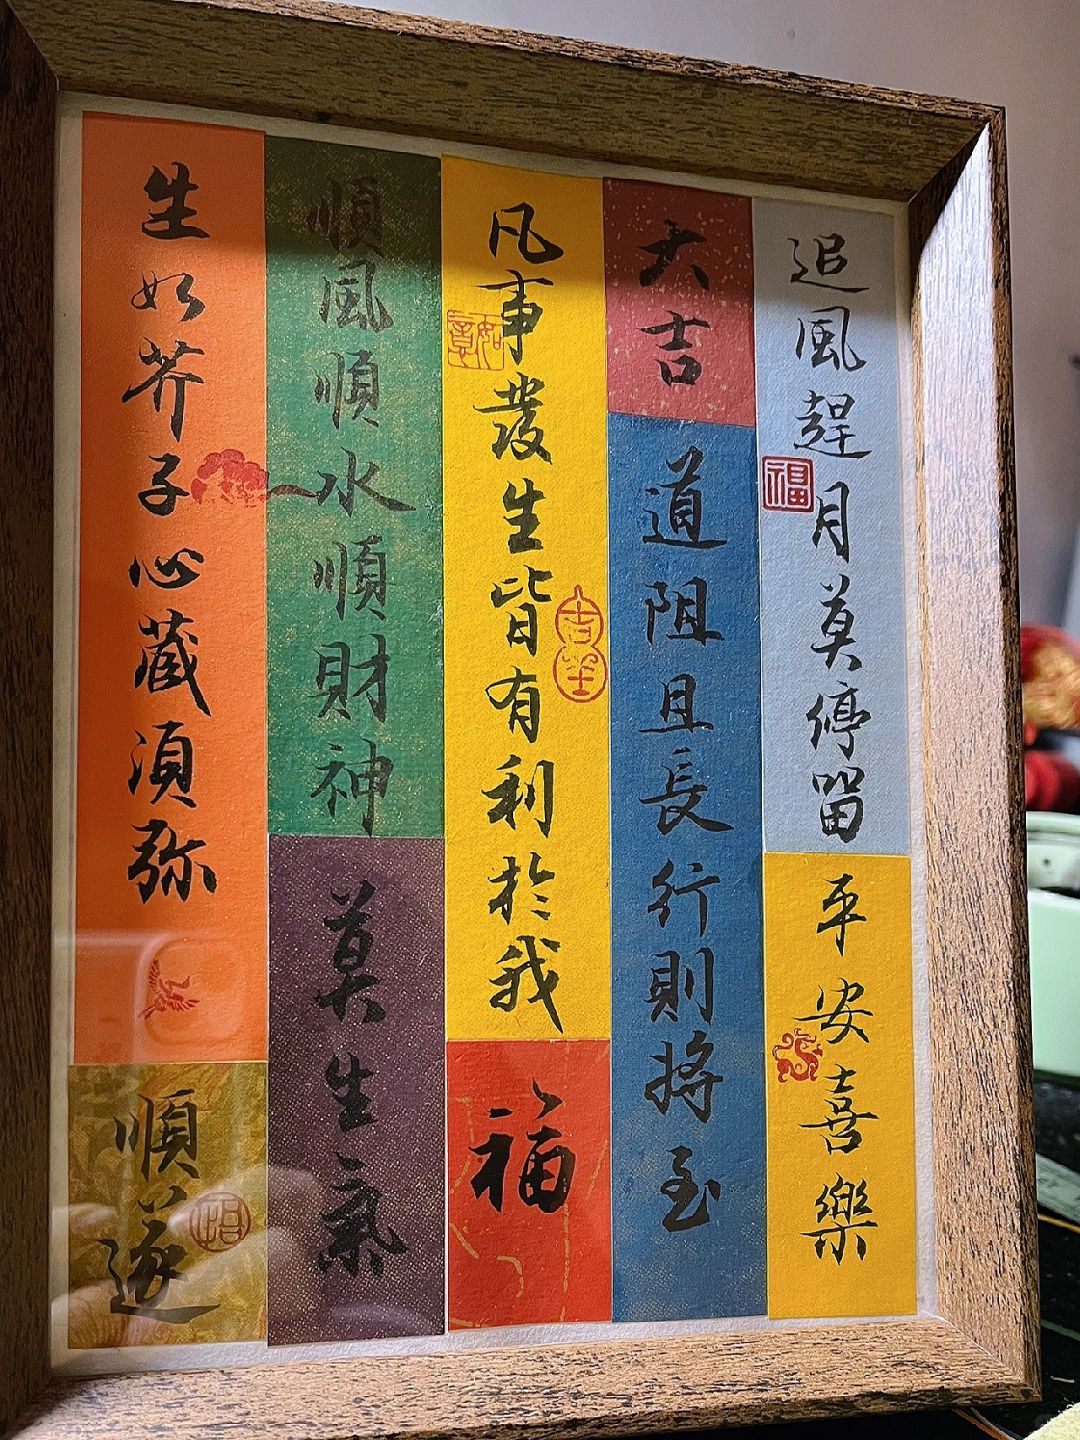 追風趕月莫停留
福
平安喜樂
大吉
道阻且長行則將至
凡事發生皆有利於我
如意
福
順風順水順財神
莫生氣
生如芥子心藏須弥
順遂